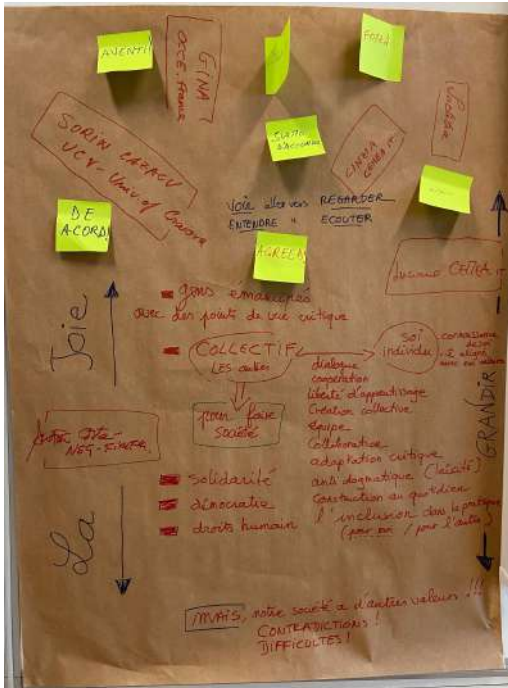 AVENTI!
GINA
OCCE. France
SORIN CAZACU
UCV - Univ of Craiova
CEMEA IT.
DE
ACORD!
VOIR aller vers REGARDER
ENTENDRE " ECOUTER
AGREED!
Luciano CEMEA IT
gens émancipés
avec des points de vue critique
COLLECTIF
LES autres
Soi
individu
connaissance
de soi
pour faire
société
dialogue
coopération
liberté d'apprentissage
Création collective
équipe
Collaborative
adaptation critique
anti dogmatique (laïcité)
Construction au quotidien
l'inclusion dans la pratique
(pour soi / pour l'autre)
solidarité
démocratie
droits humain
La Joie
GRANDIR
MAIS, notre société a d'autres valeurs !!!
CONTRADICTIONS !
DIFFICULTES !